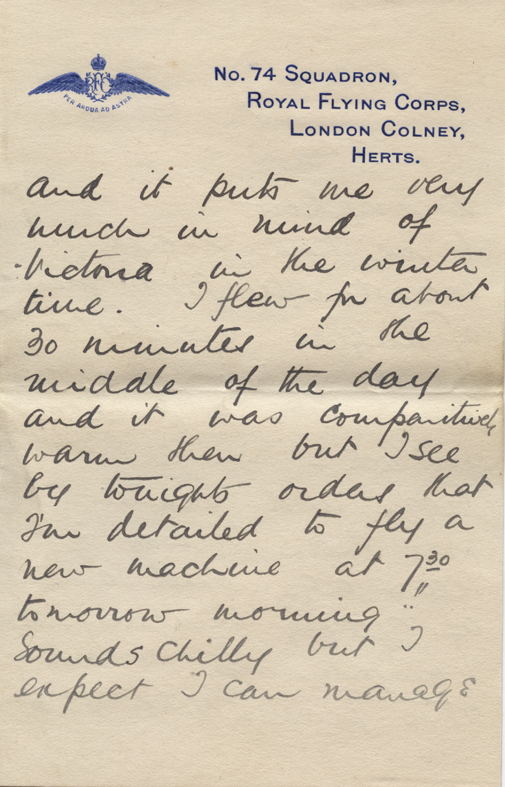 RFC
PER ARDUA AD ASTRA
No. 74 Squadron,
Royal Flying Corps,
London Colney,
Herts.
and it puts me very
much in mind of
Victoria in the winter
time. I flew for about
30 minutes in the
middle of the day
and it was comparitively
warm then but I see
by tonights orders that
I'm detailed to fly a
new machine at 7 30
tomorrow morning
Sounds chilly but I
expect I can manage